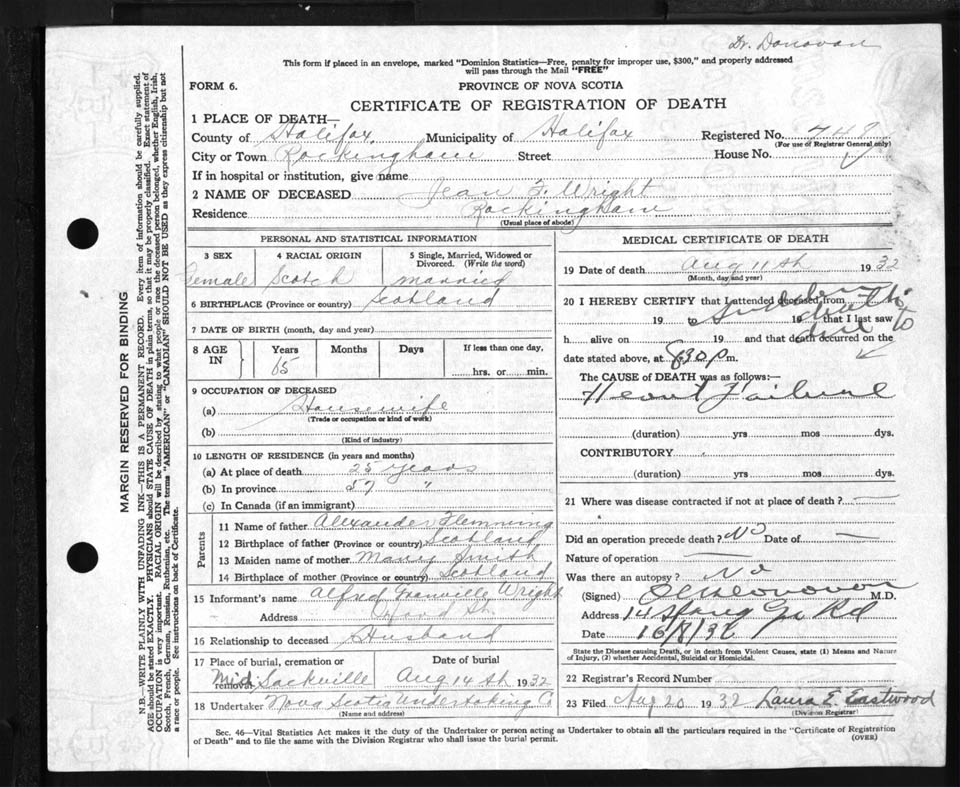 Dr. Donovan
This form if placed in an envelope, marked "Dominion Statistics—Free, penalty for improper use, $300," and properly addressed
will pass through the Mail "FREE"
FORM 6.
PROVINCE OF NOVA SCOTIA
CERTIFICATE OF REGISTRATION OF DEATH
1 PLACE OF DEATH—
County of Halifax Municipality of Halifax Registered No. 749
(For use of Registrar General only)
City or Town Rockingham Street House No.
If in hospital or institution, give name
2 NAME OF DECEASED Jean F. Wright
Residence Rockingham
(Usual place of abode)
PERSONAL AND STATISTICAL INFORMATION
3 SEX 4 RACIAL ORIGIN 5 Single, Married, Widowed or Divorced. (Write the word)
Female Scotch married
6 BIRTHPLACE (Province or country) Scotland
7 DATE OF BIRTH (month, day and year)
8 AGE IN Years Months Days If less than one day,
hrs. or min.
9 OCCUPATION OF DECEASED
(a) Housewife
(Trade or occupation or kind of work)
(b)
(Kind of industry)
10 LENGTH OF RESIDENCE (in years and months)
(a) At place of death 25 years
(b) In province 57 "
(c) In Canada (if an immigrant)
Parents
11 Name of father Alexander Flemming
12 Birthplace of father (Province or country) Scotland
13 Maiden name of mother Smith
14 Birthplace of mother (Province or country) Scotland
15 Informant's name Alfred Granville Wright
Address
16 Relationship to deceased Husband
17 Place of burial, cremation or removal Mid. Sackville
Date of burial Aug 14th 1932
18 Undertaker Nova Scotia Undertaking Co
(Name and address)
MEDICAL CERTIFICATE OF DEATH
19 Date of death Aug 11th 1932
(Month, day and year)
20 I HEREBY CERTIFY that I attended deceased from
19 to 19 that I last saw
Sudden death due to
h alive on 19 and that death occurred on the
date stated above, at 8.30 p.m.
The CAUSE OF DEATH was as follows:—
Heart Failure
(duration) yrs mos. dys.
CONTRIBUTORY
(duration) yrs. mos. dys.
21 Where was disease contracted if not at place of death? —
Did an operation precede death? No Date of —
Nature of operation —
Was there an autopsy? No
(Signed) M.D.
Address 14 Rd
Date 16/8/32
State the Disease causing Death, or in death from Violent Causes, state (1) Means and Nature
of Injury, (2) whether Accidental, Suicidal or Homicidal.
22 Registrar's Record Number
23 Filed Aug 20 1932 Laura E. Eastwood
(Division Registrar)
Sec. 46—Vital Statistics Act makes it the duty of the Undertaker or person acting as Undertaker to obtain all the particulars required in the "Certificate of Registration
of Death" and to file the same with the Division Registrar who shall issue the burial permit.
(OVER)
MARGIN RESERVED FOR BINDING
N.B.—WRITE PLAINLY WITH UNFADING INK—THIS IS A PERMANENT RECORD. Every item of information should be carefully supplied.
AGE should be stated EXACTLY. PHYSICIANS should STATE CAUSE OF DEATH in plain terms, so that it may be properly classified. Exact statement of
OCCUPATION is very important. RACIAL ORIGIN will be described by stating to what people or race the deceased person belonged, whether English, Irish,
Scotch, French, German, Russian, Ruthenian, etc. The terms "AMERICAN" or "CANADIAN" SHOULD NOT BE USED as they express citizenship but not
a race or people. See instructions on back of Certificate.